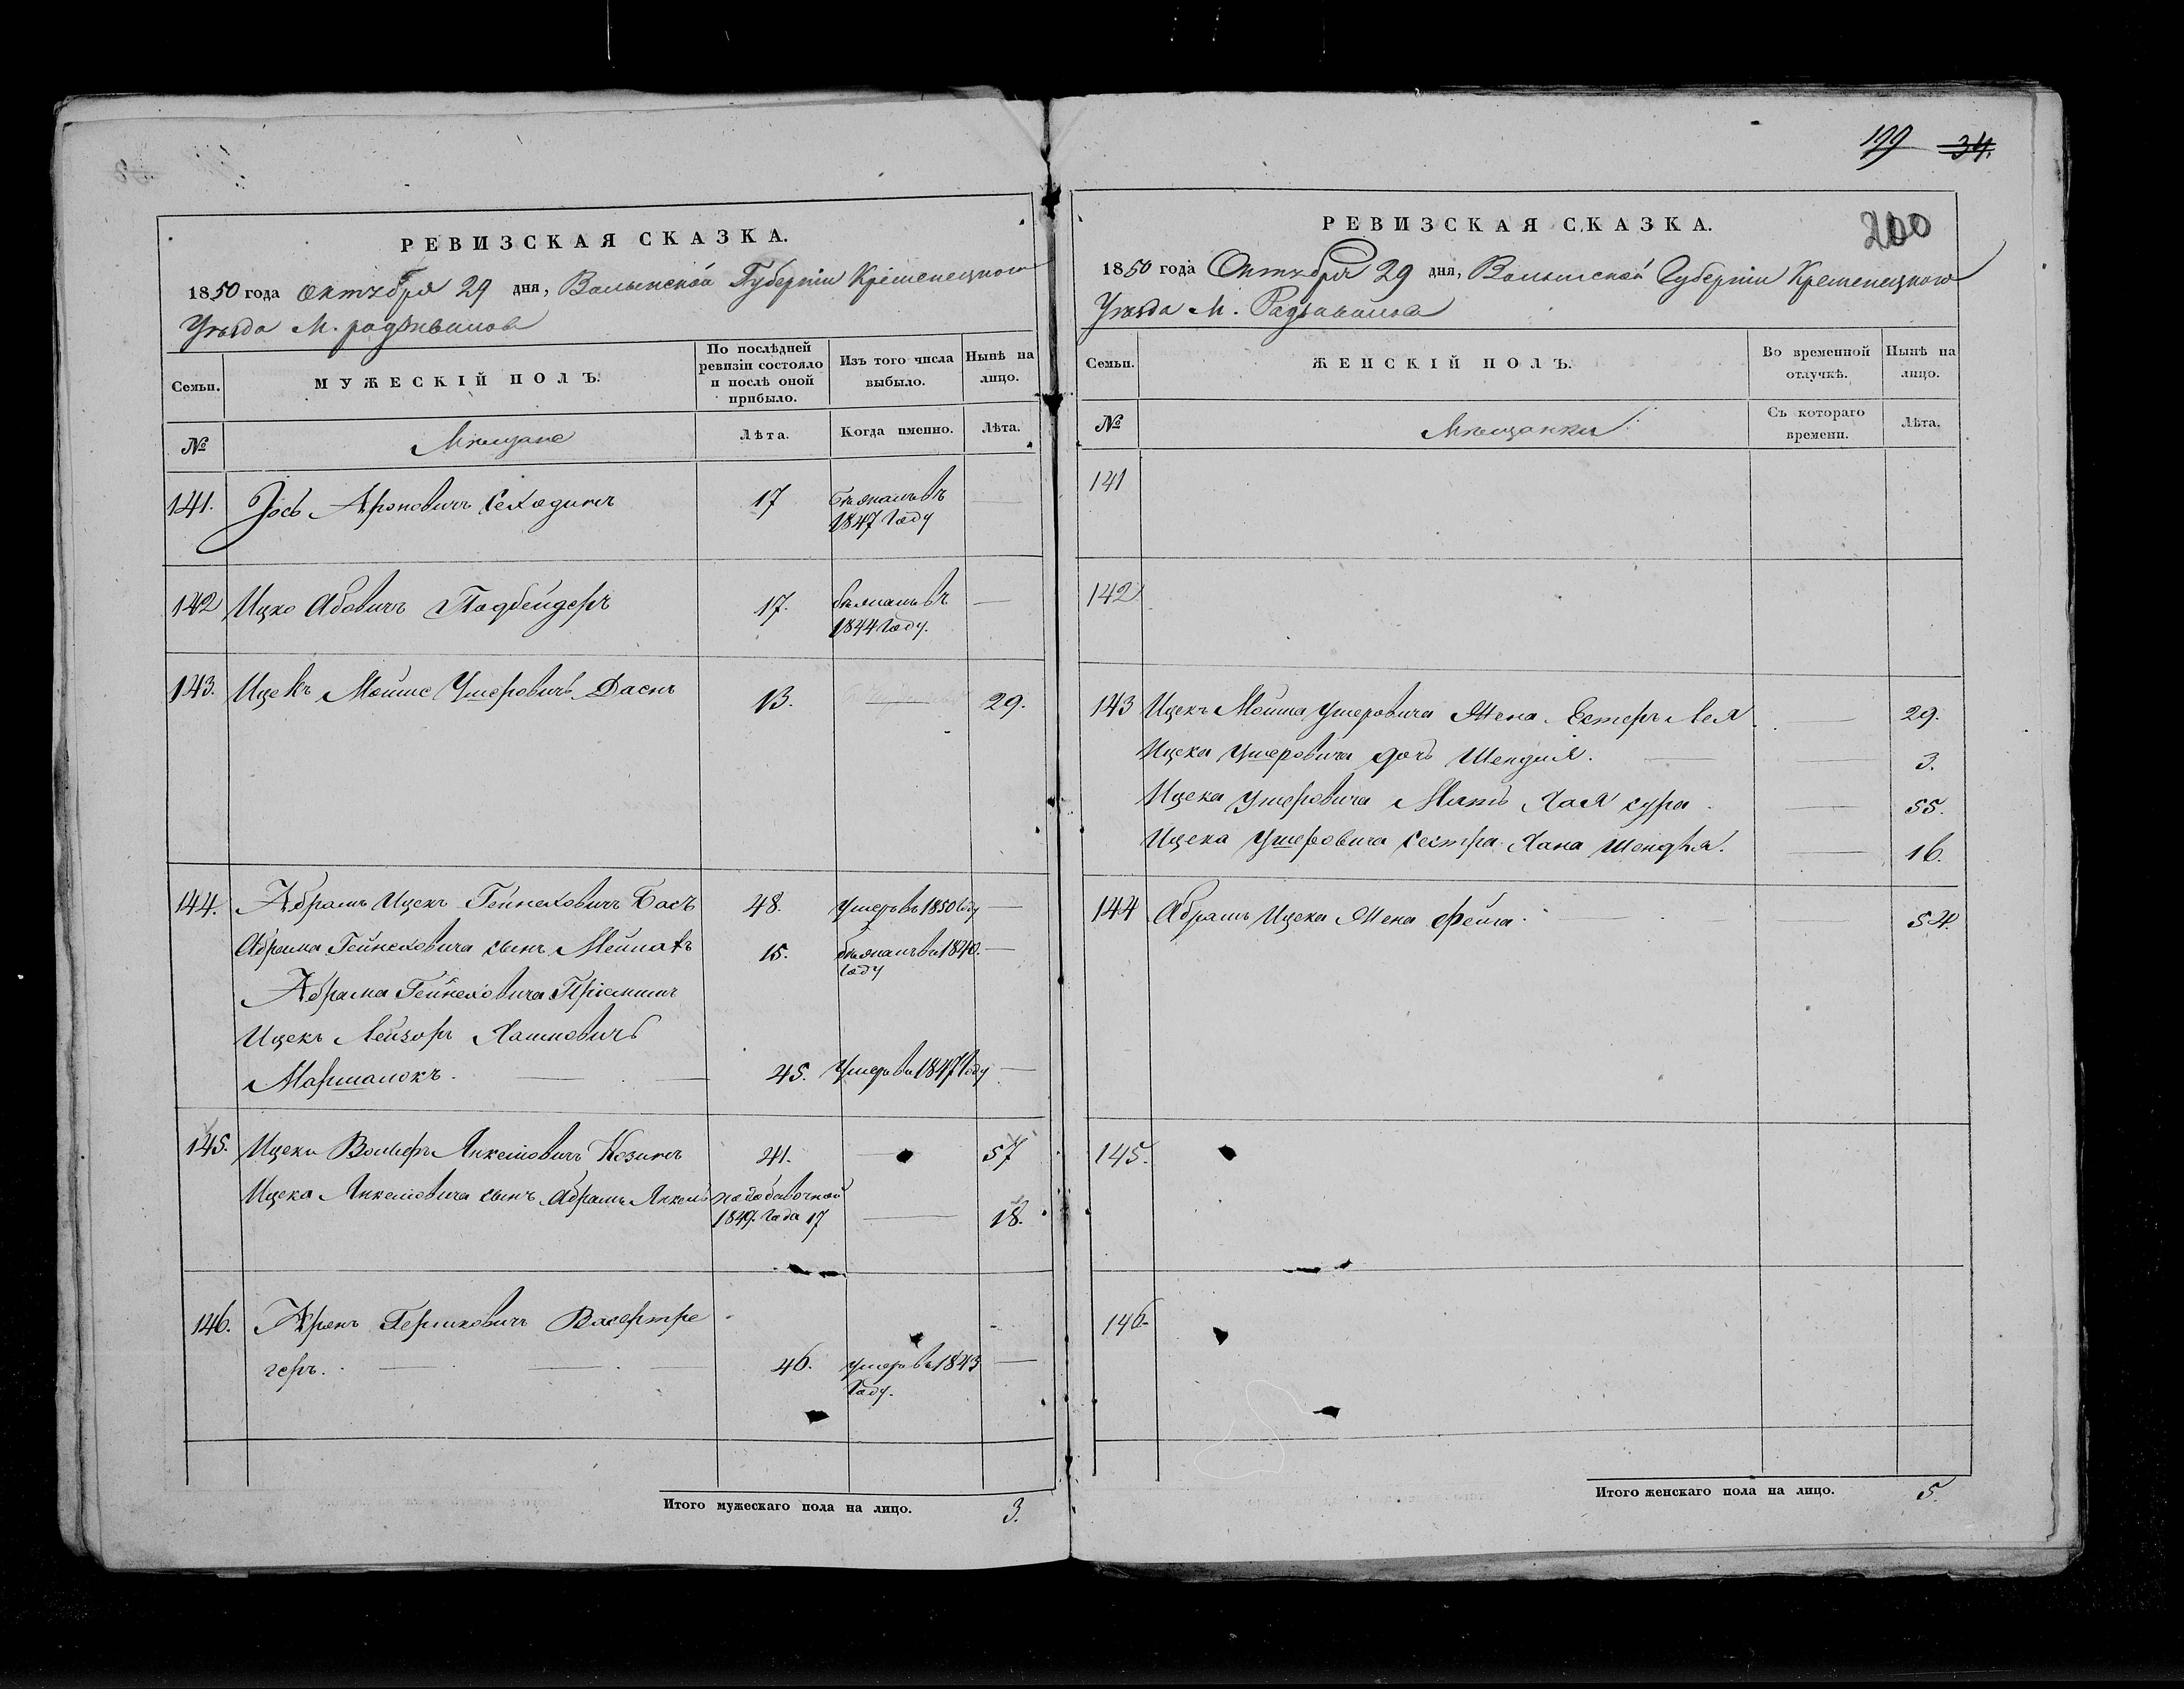 РЕВИЗСКАЯ СКАЗКА.
1850 года Октября 29 дня, Волынской Губерніи Кременецкого
Уѣзда М. радзивилова
Семьи.
МУЖЕСКІЙ ПОЛЪ.
По послѣдней
ревизіи состояло
и послѣ оной
прибыло.
Изъ того числа
выбыло.
Нынѣ на
лицо.
№
Мѣщане
Лѣта.
Когда именно.
Лѣта.
141. Іось Ароновичъ 17 бѣжалъ въ —
1847 Году
142 Ицко Абовичъ 17. бѣжалъ въ —
1844 Году.
143. Ицекъ Мойше Ушеровичъ Даснъ 13. — 29.
144. Абрамъ Ицекъ Гейнеховичъ Басъ 48. Умеръ въ 1850 Году —
Абрама Гейнеховича сынъ 15. бѣжалъ въ 1840. —
Году
Абрама Гейнеховича Пріемышъ
Ицекъ Лейзоръ Хаимовичъ
Маршалокъ. — 45. Умеръ въ 1847 Году —
145. Ицекъ Вольфъ Янкелиовичъ Козинъ 41. — 57
Ицека Янкелиовича сынъ Абрамъ Янкель по добавочной
1849. Года 17 — 18.
146. Аронъ Гершковичъ Васертре
геръ. — 46. умеръ въ 1843 —
Году.
Итого мужескаго пола на лицо. 3.
199 34.
200
РЕВИЗСКАЯ СКАЗКА.
1850 года Октября 29 дня, Волынской Губерніи Кременецкого
Уѣзда М. Радзивилова
Семьи.
ЖЕНСКІЙ ПОЛЪ.
Во временной
отлучкѣ.
Нынѣ на
лицо.
№
Мѣщанки
Съ котораго
времени.
Лѣта.
141
142
143 Ицекъ Мойша Ушеровича Жена Естеръ Лея — 29.
Ицека Ушеровича дочь Шендля. — 3.
Ицека Ушеровича Мать Хая сура — 55.
Ицека Ушеровича Сестра Хана Шендля. — 16.
144 Абрамъ Ицека Жена Фейга — 54.
145.
146.
Итого женскаго пола на лицо. 5.